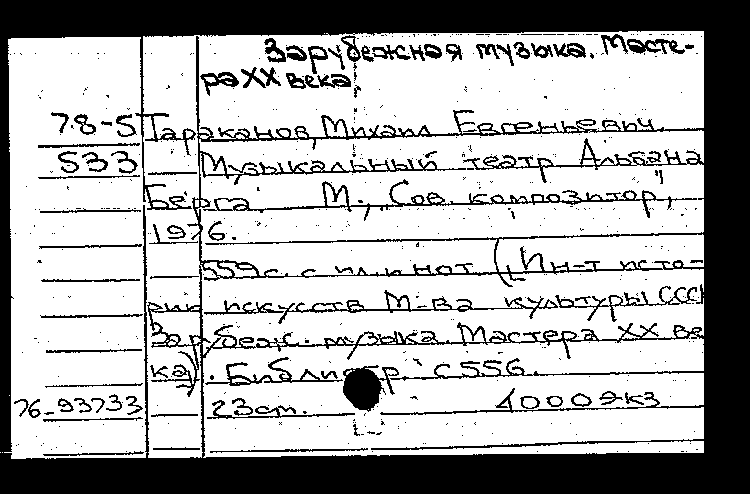 Зарубежная музыка. Масте-
ра XX века.
78-5 Тараканов, Михаил Евгеньевич.
533 Музыкальный театр Альбана
Берга. М., "Сов. композитор",
1976.
559 с. с ил. и нот. (Ин-т исто-
рии искусств М-ва культуры СССР
Зарубеж. музыка. Мастера XX ве
ка). Библиогр. с 556.
76-93733 23 см. 4000 экз